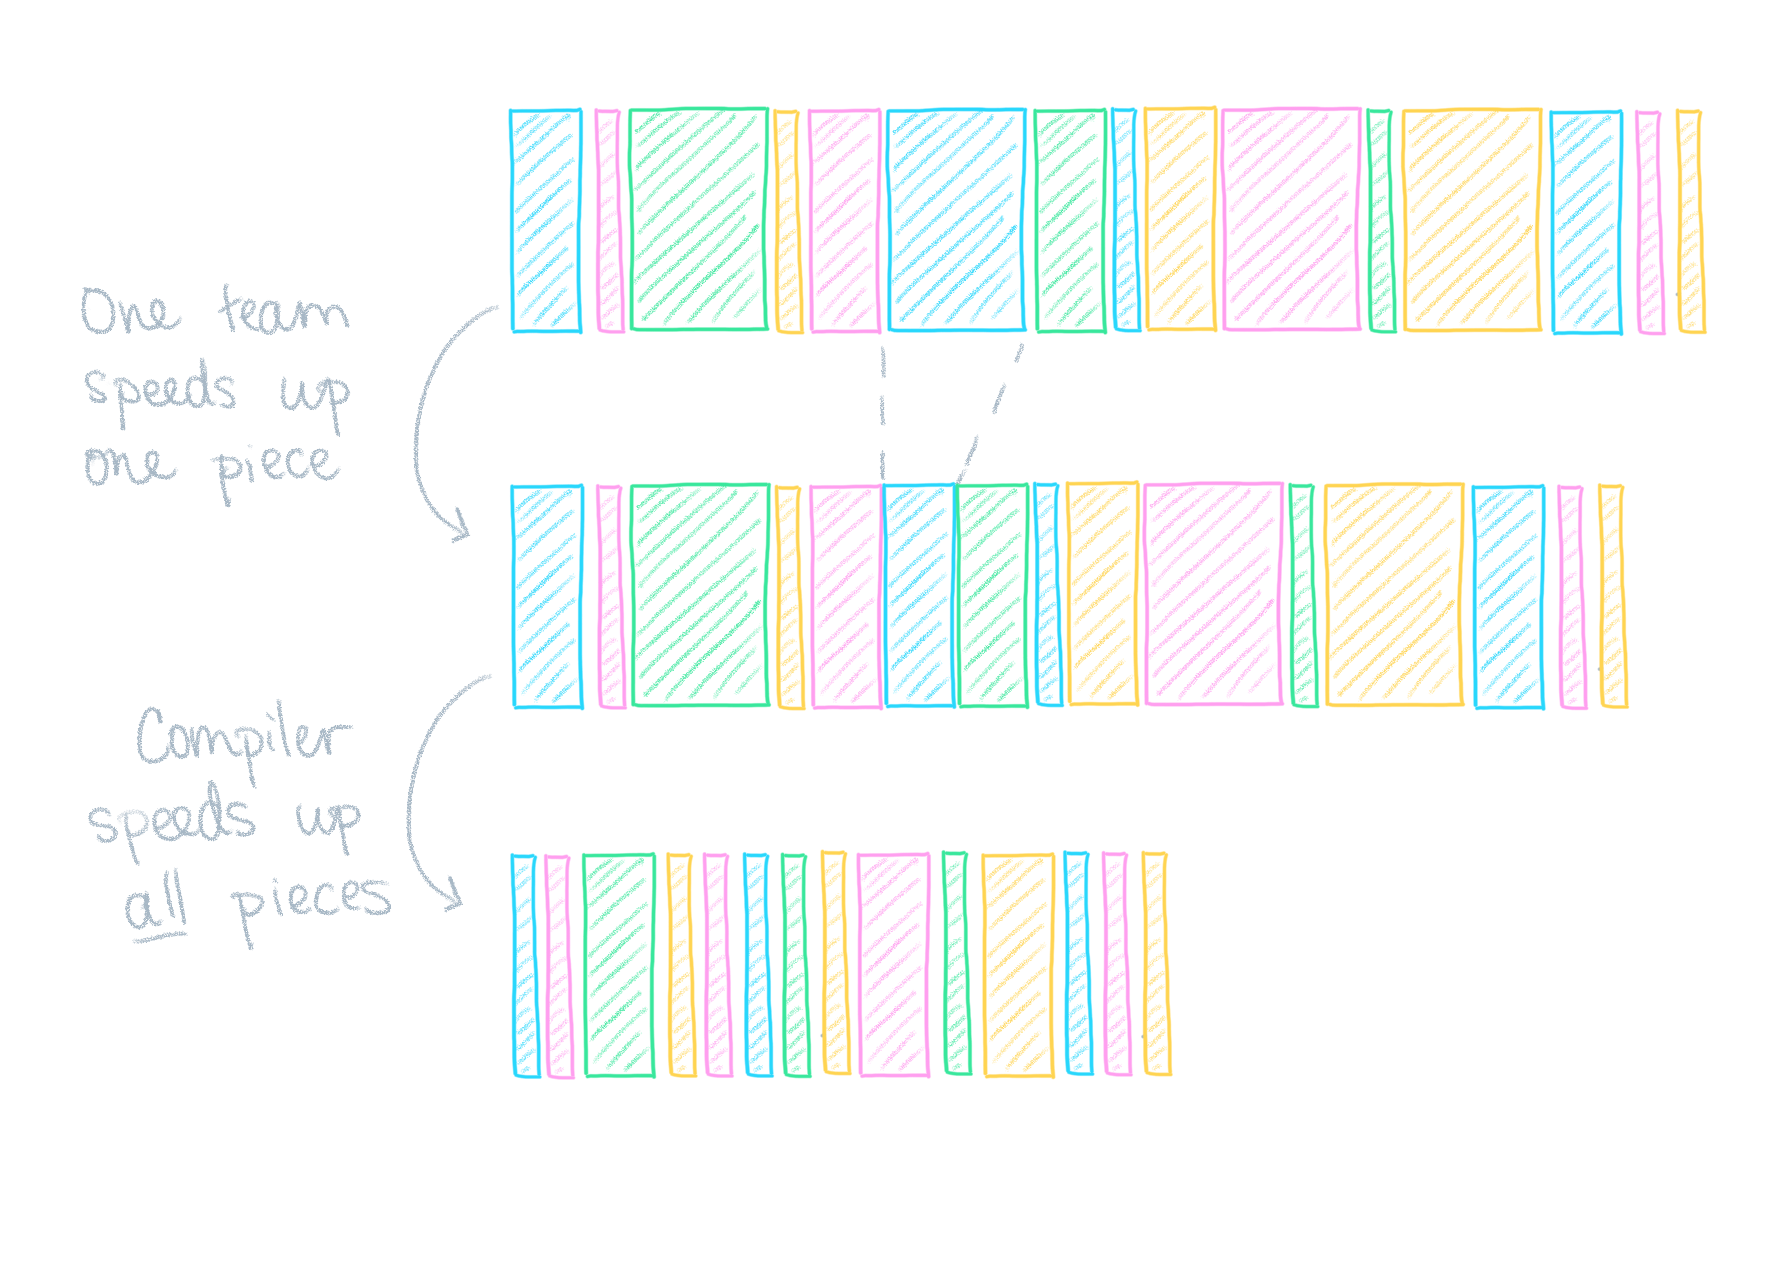 One team
speeds up
one piece
Compiler
speeds up
all pieces